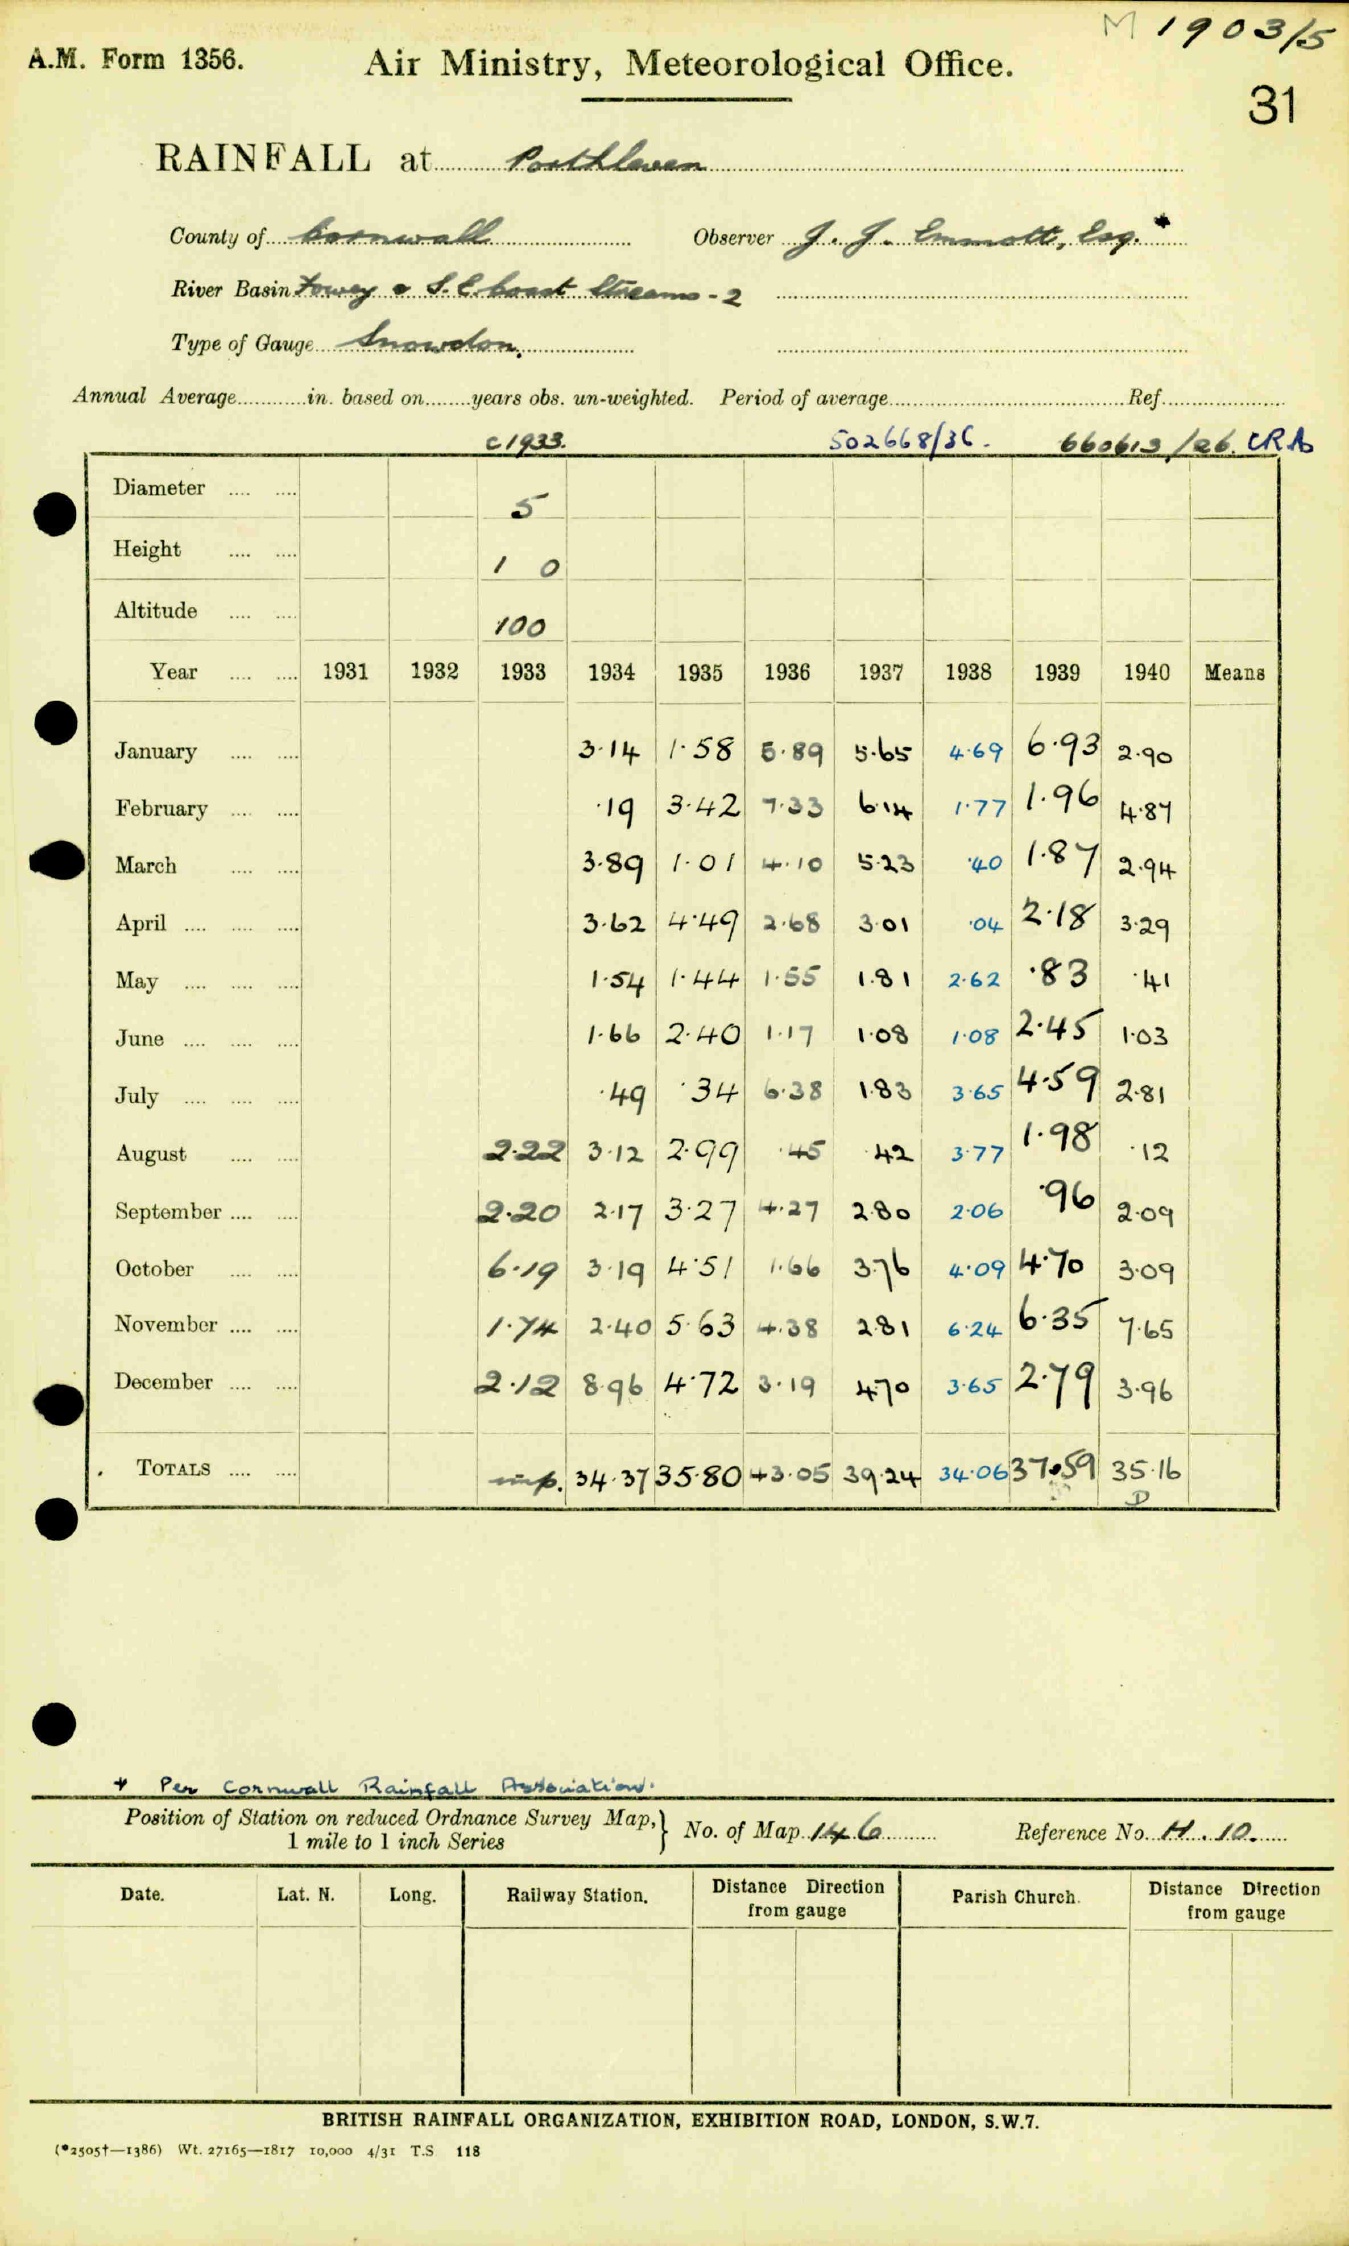 M 1903/5
A.M. Form 1356. Air Ministry, Meteorological Office.
31
RAINFALL at Porthleven
County of Cornwall Observer J. J. Emmott, Esq. *
River Basin Fowey & S.E. Coast Streams - 2
Type of Gauge Snowdon.
Annual Average in. based on years obs. un-weighted. Period of average Ref.
c1933. 502668/36. 660613/26. CRA
Diameter 5
Height 1 0
Altitude 100
Year 1931 1932 1933 1934 1935 1936 1937 1938 1939 1940 Means
January 3.14 1.58 5.89 5.65 4.69 6.93 2.90
February .19 3.42 7.33 6.14 1.77 1.96 4.87
March 3.89 1.01 4.10 5.23 .40 1.87 2.94
April 3.62 4.49 2.68 3.01 .04 2.18 3.29
May 1.54 1.44 1.55 1.81 2.62 .83 .41
June 1.66 2.40 1.17 1.08 1.08 2.45 1.03
July .49 .34 6.38 1.83 3.65 4.59 2.81
August 2.22 3.12 2.99 .45 .42 3.77 1.98 .12
September 2.20 2.17 3.27 4.27 2.80 2.06 .96 2.09
October 6.19 3.19 4.51 1.66 3.76 4.09 4.70 3.09
November 1.74 2.40 5.63 4.38 2.81 6.24 6.35 7.65
December 2.12 8.96 4.72 3.19 4.70 3.65 2.79 3.96
TOTALS imp. 34.37 35.80 43.05 39.24 34.06 37.59 35.16
D
* Per Cornwall Rainfall Association.
Position of Station on reduced Ordnance Survey Map, } No. of Map 146 Reference No. H. 10.
1 mile to 1 inch Series
Date. Lat. N. Long. Railway Station. Distance Direction Parish Church. Distance Direction
from gauge from gauge
BRITISH RAINFALL ORGANIZATION, EXHIBITION ROAD, LONDON, S.W.7.
(*2505†—1386) Wt. 27165—1817 10,000 4/31 T.S 118